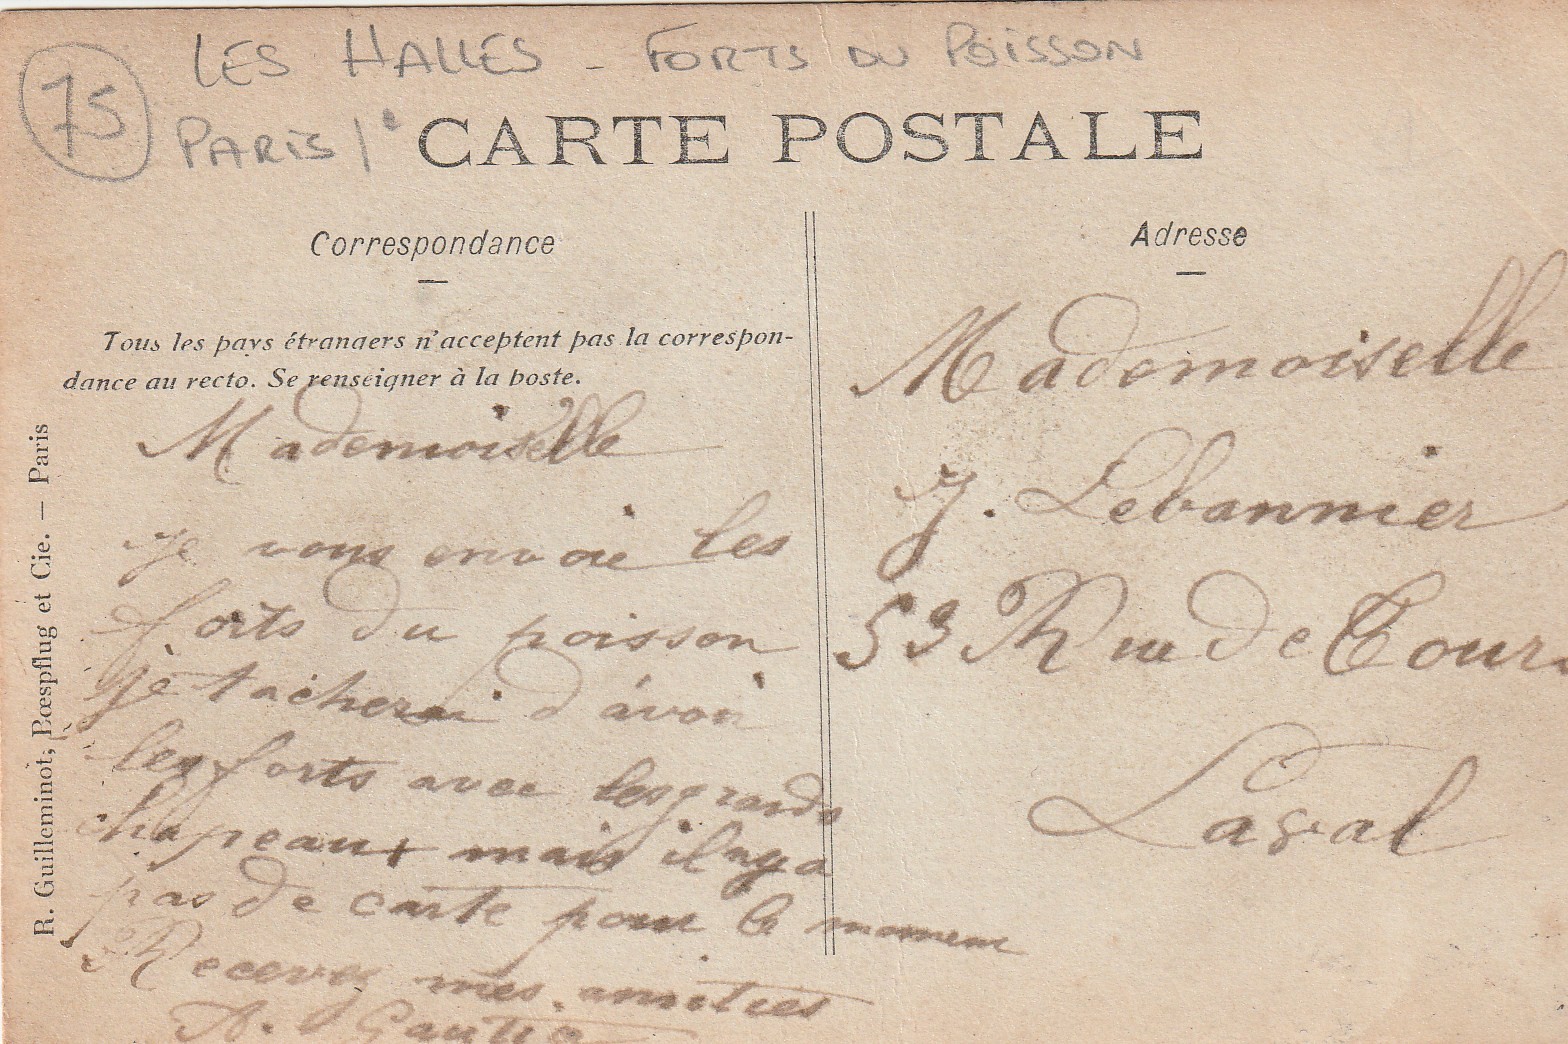 75
LES HALLES - FORTS DU POISSON
PARIS 1e
CARTE POSTALE
Correspondance
Tous les pays étrangers n'acceptent pas la correspon-
dance au recto. Se renseigner à la poste.
Mademoiselle
je vous envoie les
forts du poisson
je tacherai d'avoir
les forts avec les grands
chapeaux mais il ny a
pas de carte pour le moment
Recevez mes amities
A. Gautie
R. Guilleminot, Bœspflug et Cie. — Paris
Adresse
Mademoiselle
J. Lebannier
53 Rue de
Laval